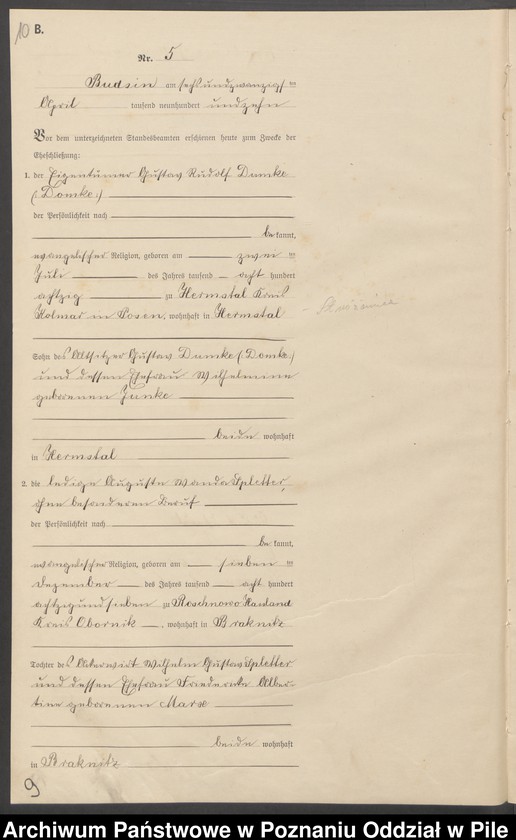 10 B.
Nr. 5
Budsin am sechsundzwanzigst ten
April tausend neunhundert undzehn
Vor dem unterzeichneten Standesbeamten erschienen heute zum Zwecke der
Eheschließung:
1. der Eigentümer Gustav Rudolf Dumke
(Domke)
der Persönlichkeit nach
be kannt,
evangelischer Religion, geboren am zwei ten
Juli des Jahres tausend acht hundert
achtzig zu Hermstal Kreis
Kolmar in Posen, wohnhaft in Hermstal
Sohn des Altsitzer Gustav Dumke (Domke)
und dessen Ehefrau Wilhelmine
geborenen Janke
beide wohnhaft
in Hermstal
2. die ledige Auguste Wanda Spletter,
ohne besonderen Beruf
der Persönlichkeit nach
be kannt,
evangelischer Religion, geboren am sieben ten
Dezember des Jahres tausend acht hundert
achtzigundsieben zu Roschnowo Hauland
Kreis Obornik, wohnhaft in Braknitz
Tochter des Ackerwirt Wilhelm Gustav Spletter
und dessen Ehefrau Friederike Alber-
tine geborenen Marx
beide wohnhaft
in Braknitz
9
Archiwum Państwowe w Poznaniu Oddział w Pile